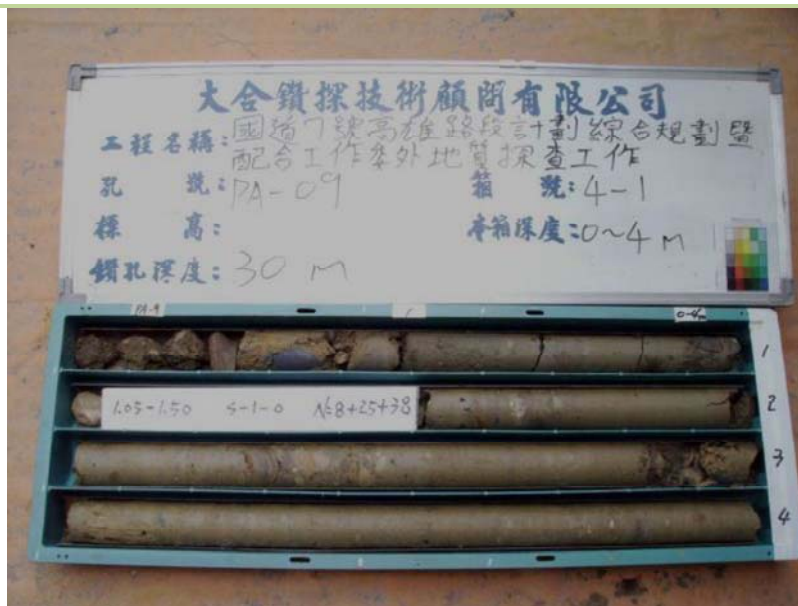 大合鑽探技術顧問有限公司
工程名稱:國道7號高雄路段計劃綜合規劃暨
配合工作委外地質探查工作
孔 號:PA-09 箱 號:4-1
標 高: 本箱深度:0~4m
鑽孔深度:30m
PA-9 1 0-4m
1
1.05-1.50 S-1-0 N=8+25+38 2
3
4